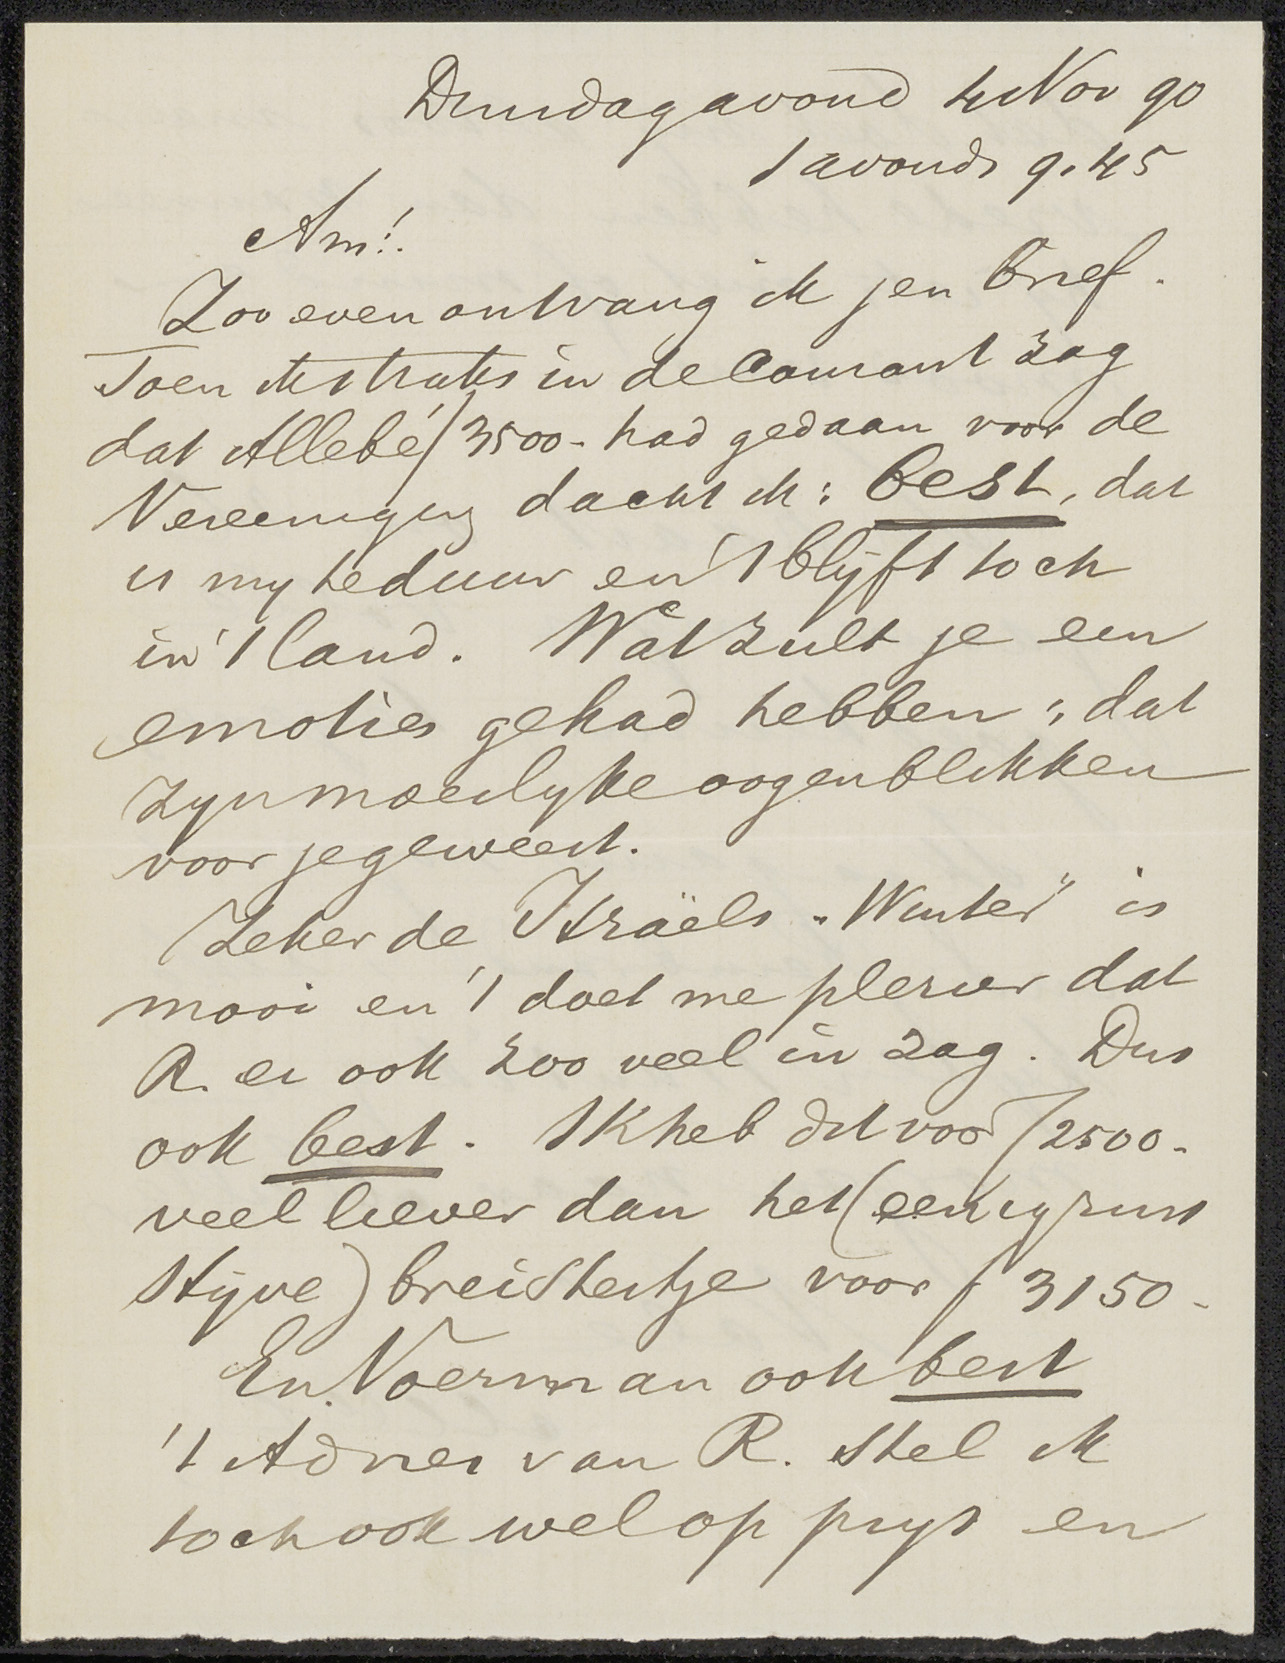 Dinsdagavond 4 Nov 90
s avonds 9.45
Am!.
Zoo even ontvang ik jen brief.
Toen ik straks in de Courant zag
dat Allebé ƒ3500- had gedaan voor de
Vereeniging dacht ik: best, dat
is my te duur en 't blijft toch
in 't land. Wat zult je een
emoties gehad hebben; dat
zyn moeilyke oogenblikken
voor je geweest.
Zeker de Israëls „Winter" is
mooi en 't doet me plezier dat
R. er ook zoo veel in zag. Dus
ook best. Ik heb dit voor ƒ2500-
veel liever dan het (eenigzins
stijve) breistertje voor ƒ 3150-
En Noerman ook best
't Adres van R. stel ik
toch ook wel op prys en